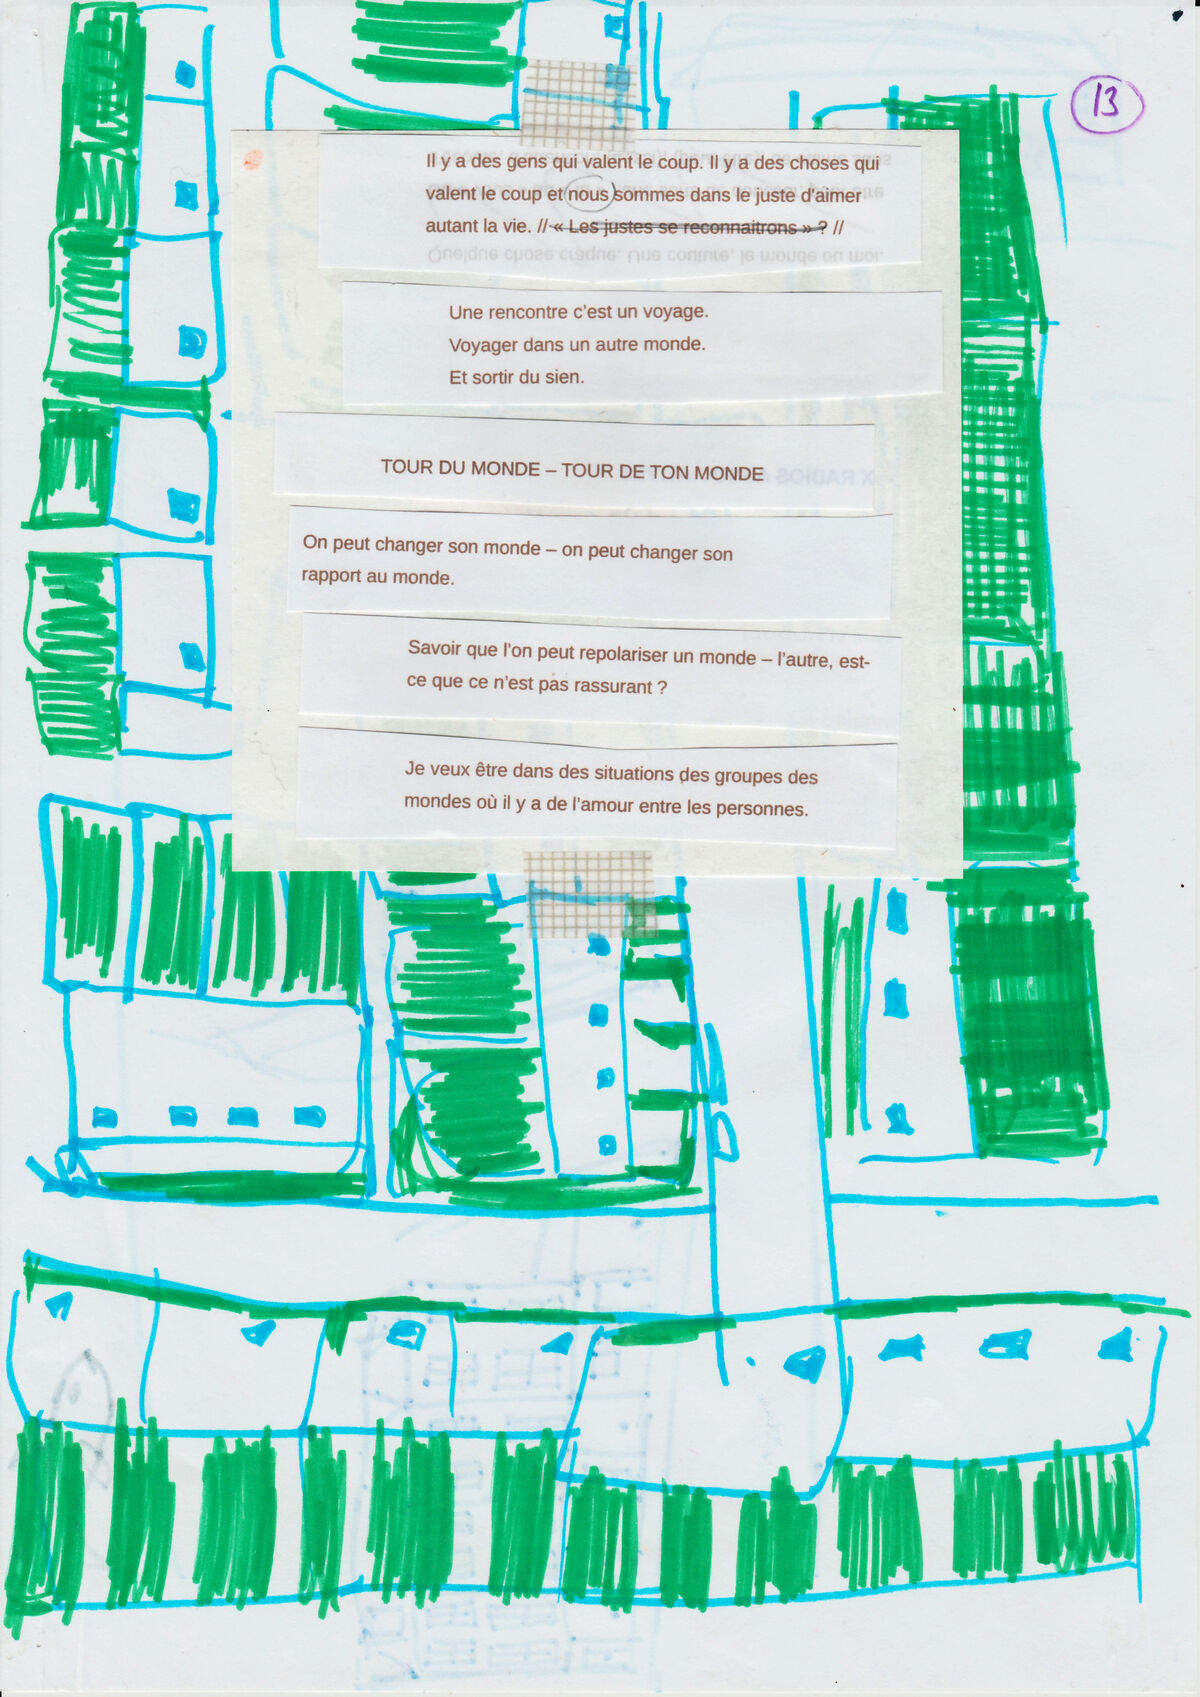 13
Il y a des gens qui valent le coup. Il y a des choses qui
valent le coup et nous sommes dans le juste d'aimer
autant la vie. // « Les justes se reconnaitrons » ? //
Quelque chose craque. Une couture, le monde ou moi.
Une rencontre c'est un voyage.
Voyager dans un autre monde.
Et sortir du sien.
TOUR DU MONDE – TOUR DE TON MONDE
X RADIOS
On peut changer son monde – on peut changer son
rapport au monde.
Savoir que l'on peut repolariser un monde – l'autre, est-
ce que ce n'est pas rassurant ?
Je veux être dans des situations des groupes des
mondes où il y a de l'amour entre les personnes.